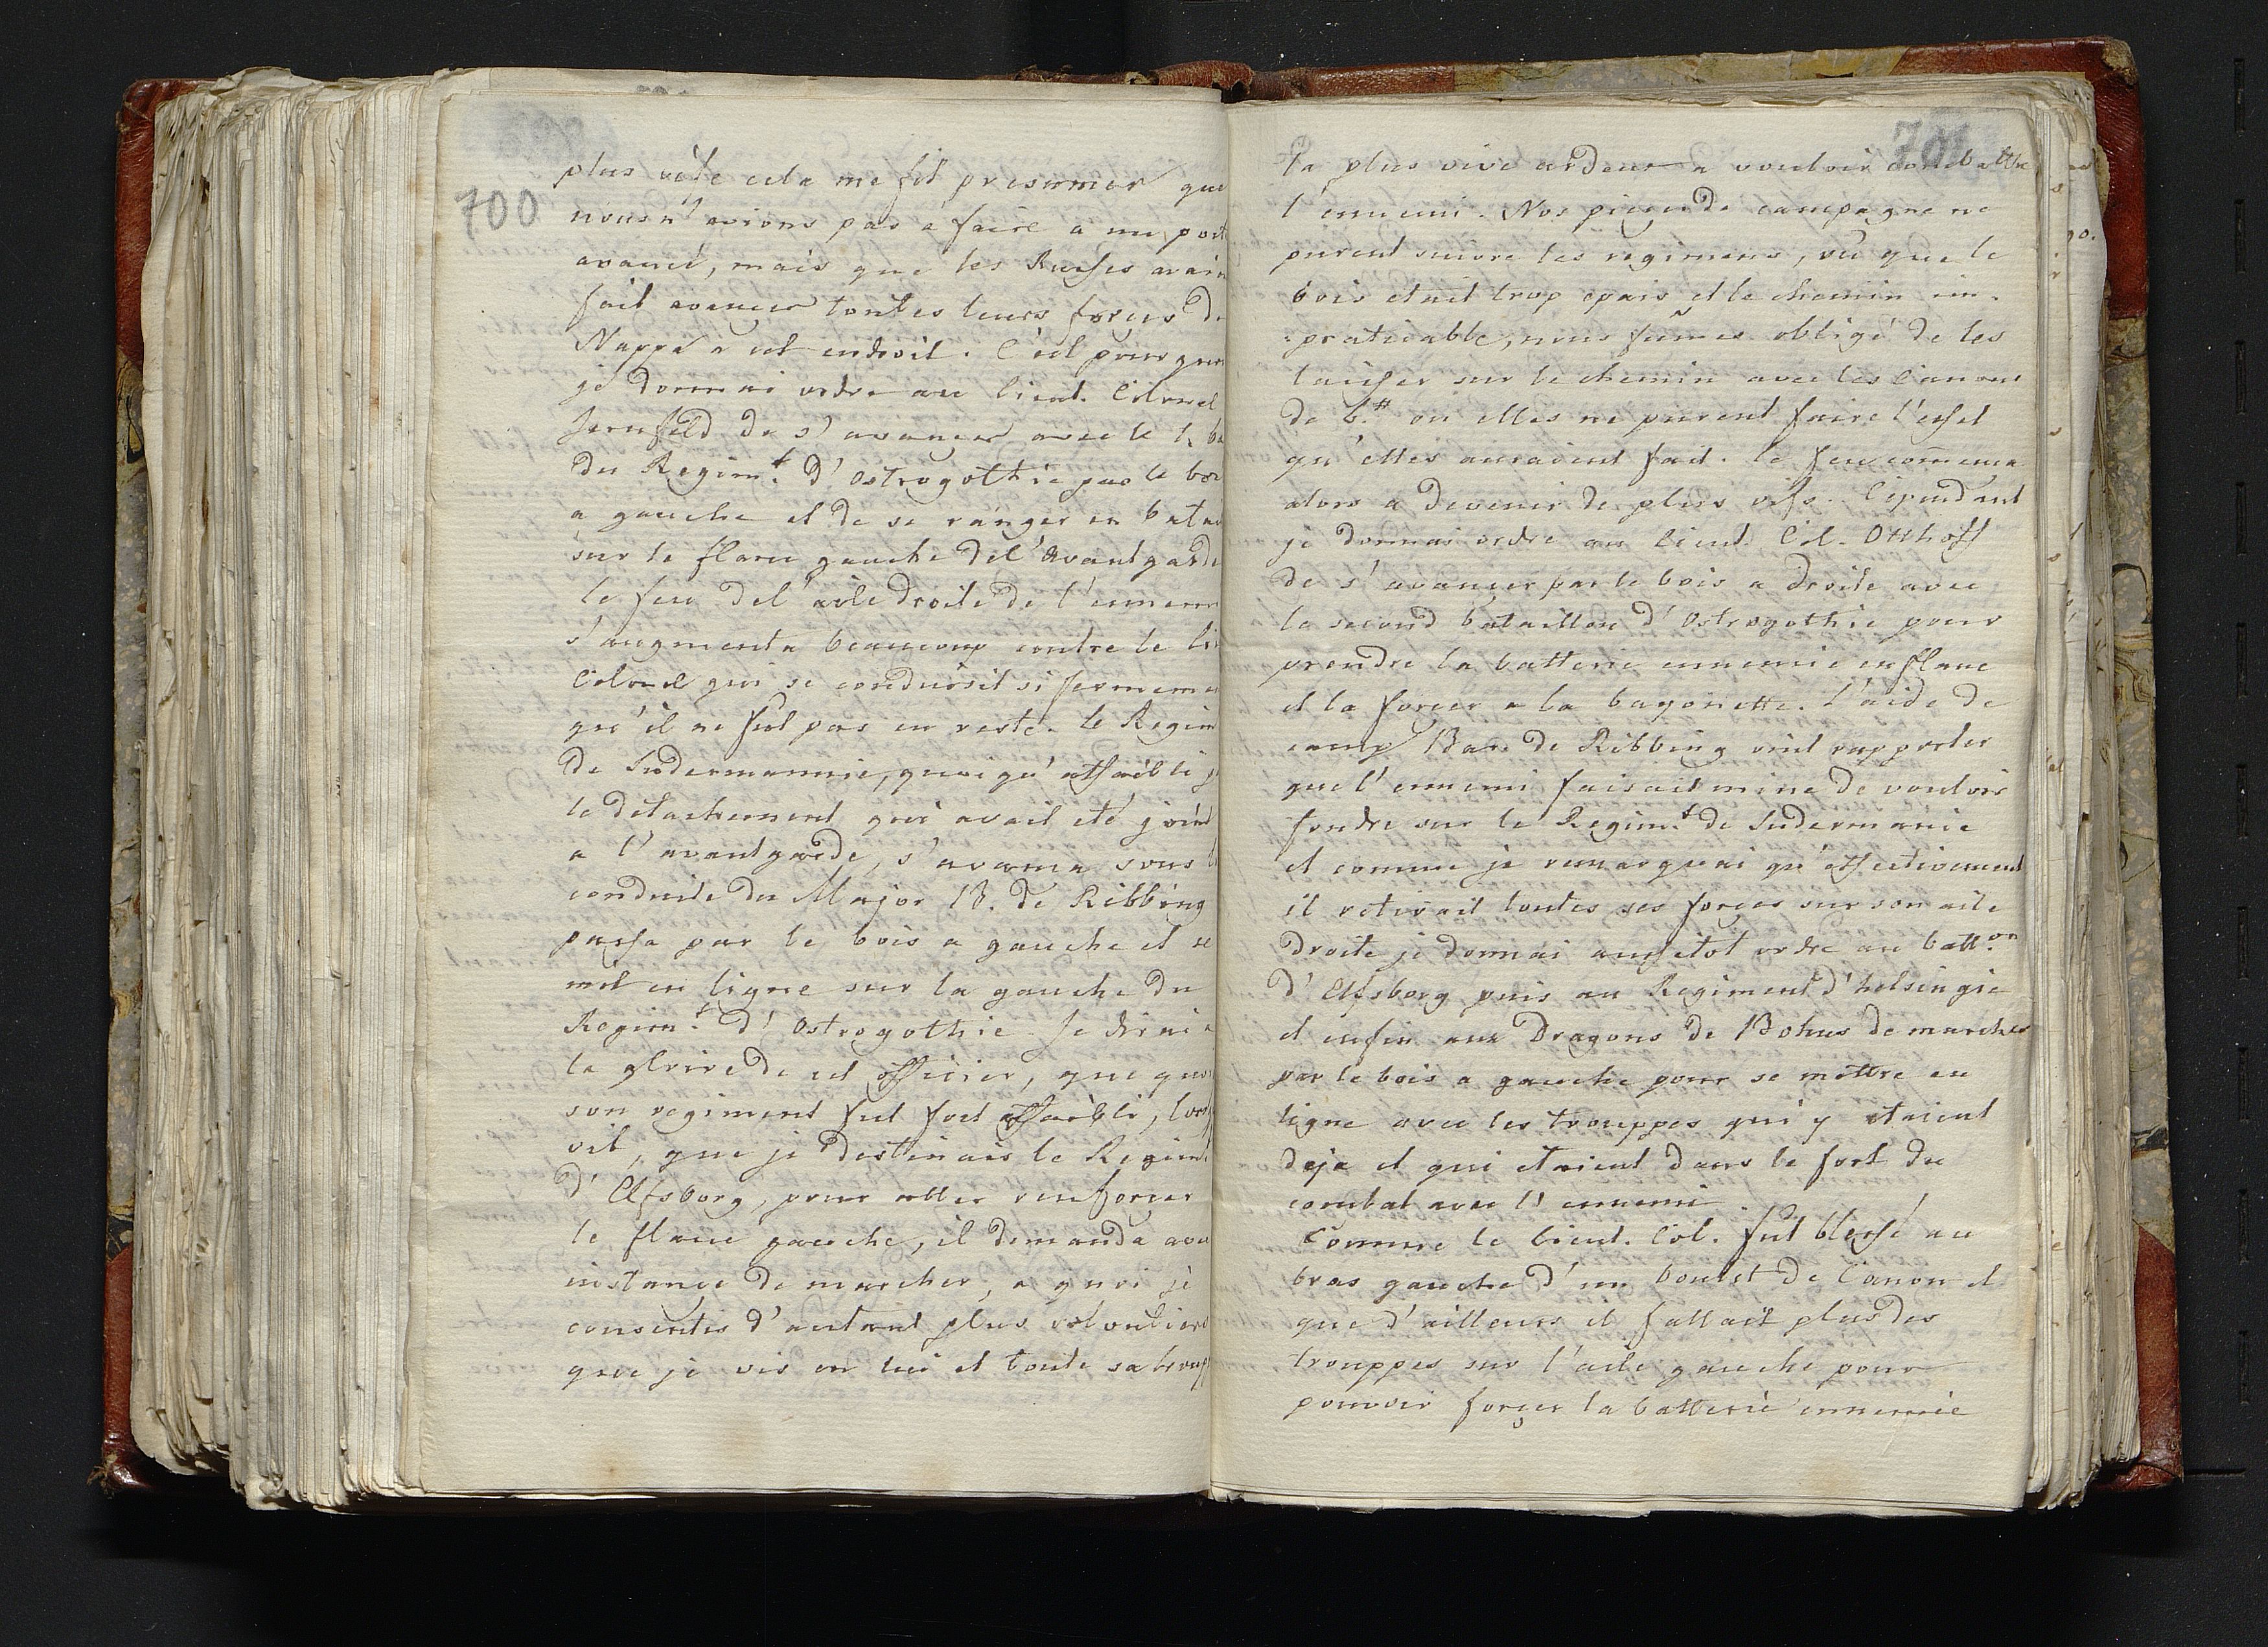 700
plus vite cela me fit presumer que
nous n'avions pas a faire a un post
avancé, mais que les Russes avaie
fait avancer toutes leurs forces de
Nappa a cet endroit. C'est pourquoi
je donnai ordre au Lieut. Colonel
Jernfeld de s'avancer avec le 1. ba
du Regim.t d'Ostrogothie par le boi
a gauche et de se ranger en batai
sur le flanc gauche de l'avantgarde
le feu de l'aile droite de l'ennem
s'augmenta beaucoup contre le Li
Colonel qui se conduisit si fermeme
qu'il ne fut pas en reste. le Regim
de Sudermannie, quoiqu'affaibli p
le detachement qui avait eté joint
a l'avantgarde, s'avança sous l
conduite du Major B. de Ribbing
passa par le bois a gauche et se
mit en ligne sur la gauche du
Regim.t d'Ostrogothie Je dirai a
la gloire de cet officier, que quoi
son regiment fut fort affaibli, lors
vit, que je destinais le Regimt
d'Elfsborg, pour aller renforcer
le flanc gauche, il demanda avec
instance de marcher, a quoi je
consentis d'autant plus volontiers
que je vis en lui et toute sa troup
701
la plus vive ardeur a vouloir combattre
l'ennemi. Nos pieces de campagne ne
purent suivre les regimens, vu que le
bois etait trop epais et le chemin im-
=praticable, nous fumes obligé de les
laisser sur le chemin avec les Canons
de 6.# ou elles ne purent faire l'effet
qu'elles auraient fait. le feu com̄ença
alors a devenir de plus vifs. Cependant
je donnai ordre au Lieut. Col. Otthoff
de s'avancer par le bois a droite avec
le second bataillon d'Ostrogothie pour
prendre la batterie ennemie en flanc
et la forcer a la bayonette. L'aide de
camp Bar. de Ribbing vint rapporter
que l'ennemi faisait mine de vouloir
fondre sur le Regim.t de Sudermanie
et comme je remarquai qu'effectivement
il retirait toutes ses forces sur son aile
droite je donnai aussitot ordre au batt.on
d'Elfsborg puis au Regiment d'helsingie
et enfin aux Dragons de Bohus de marcher
par le bois a gauche pour se mettre en
ligne avec les trouppes qui y etaient
deja et qui etaient dans le fort du
combat avec l'ennemi
Comme le Lieut. Col. fut blessé au
bras gauche d'un boulet de Canon et
que d'ailleurs il fallait plus des
trouppes sur l'aile gauche pour
pouvoir forcer la batterie ennemie